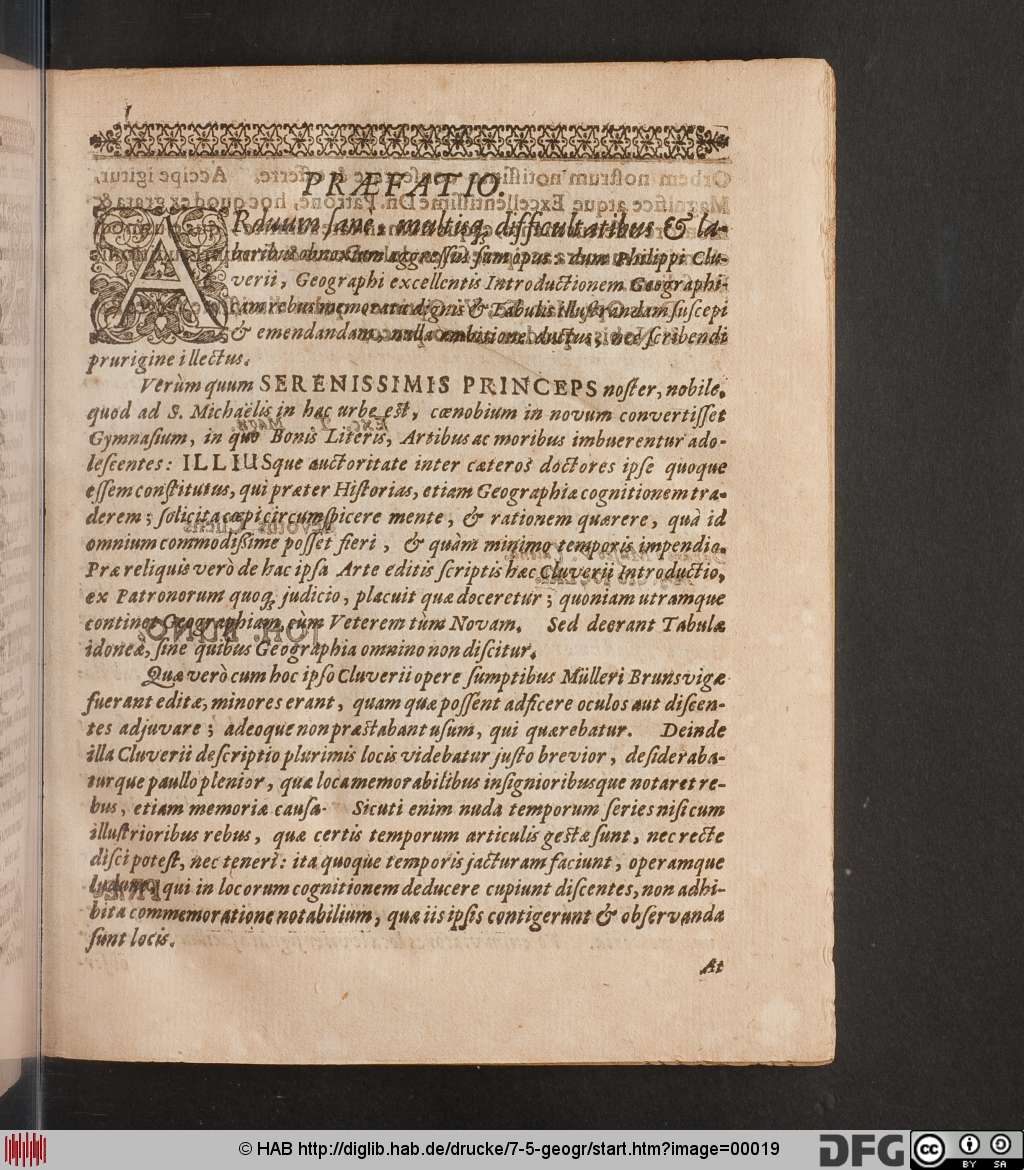 PRÆFATIO.
ARduum sanè, multisq; difficultatibus & la-
boribus obnoxium aggressus sum opus: dum Philippi Clu-
verii, Geographi excellentis Introductionem Geographi-
cam rebus memoratu dignis & Tabulis illustrandam suscepi
& emendandam, nulla ambitione ductus, nec scribendi
prurigine illectus.
Verùm quum SERENISSIMIS PRINCEPS noster, nobile,
quod ad S. Michaëlis in hac urbe est, cœnobium in novum convertisset
Gymnasium, in quo Bonis Literis, Artibus ac moribus imbuerentur ado-
lescentes: ILLIUSque auctoritate inter cæteros doctores ipse quoque
essem constitutus, qui præter Historias, etiam Geographiæ cognitionem tra-
derem; solicita cœpi circumspicere mente, & rationem quærere, quâ id
omnium commodissime posset fieri, & quàm minimo temporis impendio.
Præ reliquis verò de hac ipsa Arte editis scriptis hæc Cluverii Introductio,
ex Patronorum quoq; judicio, placuit quæ doceretur; quoniam utramque
continet Geographiam, cùm Veterem tùm Novam. Sed deerant Tabulæ
idoneæ, sine quibus Geographia omnino non discitur.
Quæ verò cum hoc ipso Cluverii opere sumptibus Mülleri Brunsvigæ
fuerant editæ, minores erant, quam quæ possent adficere oculos aut discen-
tes adjuvare; adeoque non præstabant usum, qui quærebatur. Deinde
illa Cluverii descriptio plurimis locis videbatur justo brevior, desideraba-
turque paullo plenior, quæ loca memorabilibus insignioribusque notaret re-
bus, etiam memoriæ causa. Sicuti enim nuda temporum series nisi cum
illustrioribus rebus, quæ certis temporum articulis gestæ sunt, nec recte
disci potest, nec teneri: ita quoque temporis jacturam faciunt, operamque
ludont, qui in locorum cognitionem deducere cupiunt discentes, non adhi-
bita commemoratione notabilium, quæ iis ipsis contigerunt & observanda
sunt locis.
At
© HAB http://diglib.hab.de/drucke/7-5-geogr/start.htm?image=00019
DFG
cc
BY SA